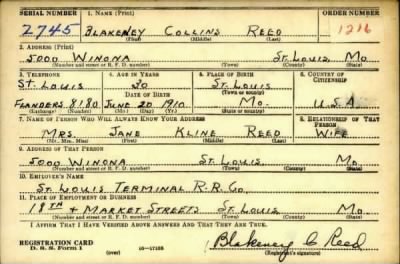 SERIAL NUMBER 1. NAME (Print) ORDER NUMBER
2745 BLAKENEY COLLINS REED 1216
(First) (Middle) (Last)
2. ADDRESS (Print)
5000 WINONA ST. LOUIS MO
(Number and street or R. F. D. number) (Town) (County) (State)
3. TELEPHONE 4. AGE IN YEARS 5. PLACE OF BIRTH 6. COUNTRY OF CITIZENSHIP
ST. LOUIS 30 ST. LOUIS
DATE OF BIRTH (Town or county)
FLANDERS 8180 JUNE 20 1910 MO. U.S.A
(Exchange) (Number) (Mo.) (Day) (Yr.) (State or country)
7. NAME OF PERSON WHO WILL ALWAYS KNOW YOUR ADDRESS 8. RELATIONSHIP OF THAT PERSON
MRS. JANE KLINE REED WIFE
(Mr., Mrs., Miss) (First) (Middle) (Last)
9. ADDRESS OF THAT PERSON
5000 WINONA ST. LOUIS MO
(Number and street or R. F. D. number) (Town) (County) (State)
10. EMPLOYER'S NAME
ST. LOUIS TERMINAL R.R. CO.
11. PLACE OF EMPLOYMENT OR BUSINESS
18TH + MARKET STREETS ST. LOUIS MO
(Number and street or R. F. D. number) (Town) (County) (State)
I AFFIRM THAT I HAVE VERIFIED ABOVE ANSWERS AND THAT THEY ARE TRUE.
REGISTRATION CARD
D. S. S. Form 1 (over) 16-17105 Blakeney C Reed
(Registrant's signature)